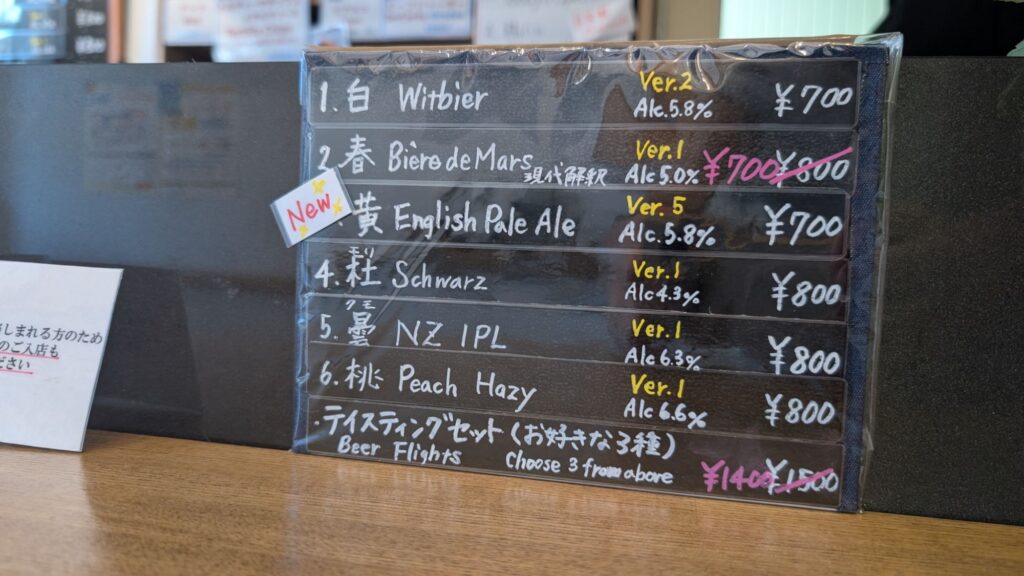 1. 白 Witbier Ver.2 Alc.5.8% ¥700
2. 春 Bière de Mars 現代解釈 Ver.1 Alc5.0% ¥700 ¥800
New 黄 English Pale Ale Ver.5 Alc.5.8% ¥700
4. Schwarz Ver.1 Alc4.3% ¥800
クモ
5. 曇 NZ IPL Ver.1 Alc6.3% ¥800
6. 桃 Peach Hazy Ver.1 Alc6.6% ¥800
・テイスティングセット(お好きな3種)
Beer Flights Choose 3 from above ¥1400 ¥1500
しまれる方のため
のご入店も
ださい